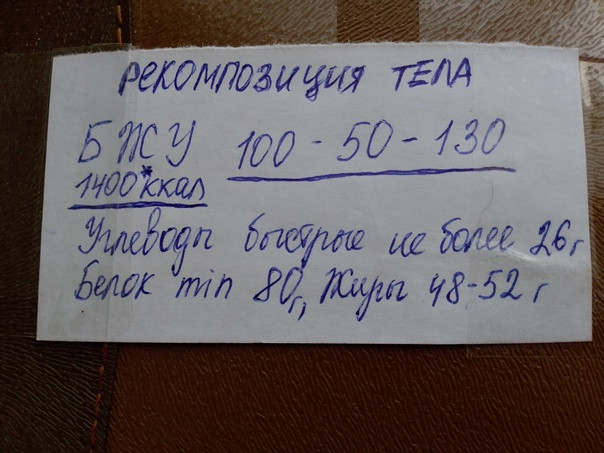 РЕКОМПОЗИЦИЯ ТЕЛА
БЖУ 100-50-130
1400*ккал
Углеводы быстрые не более 26г
Белок min 80г, Жиры 48-52 г